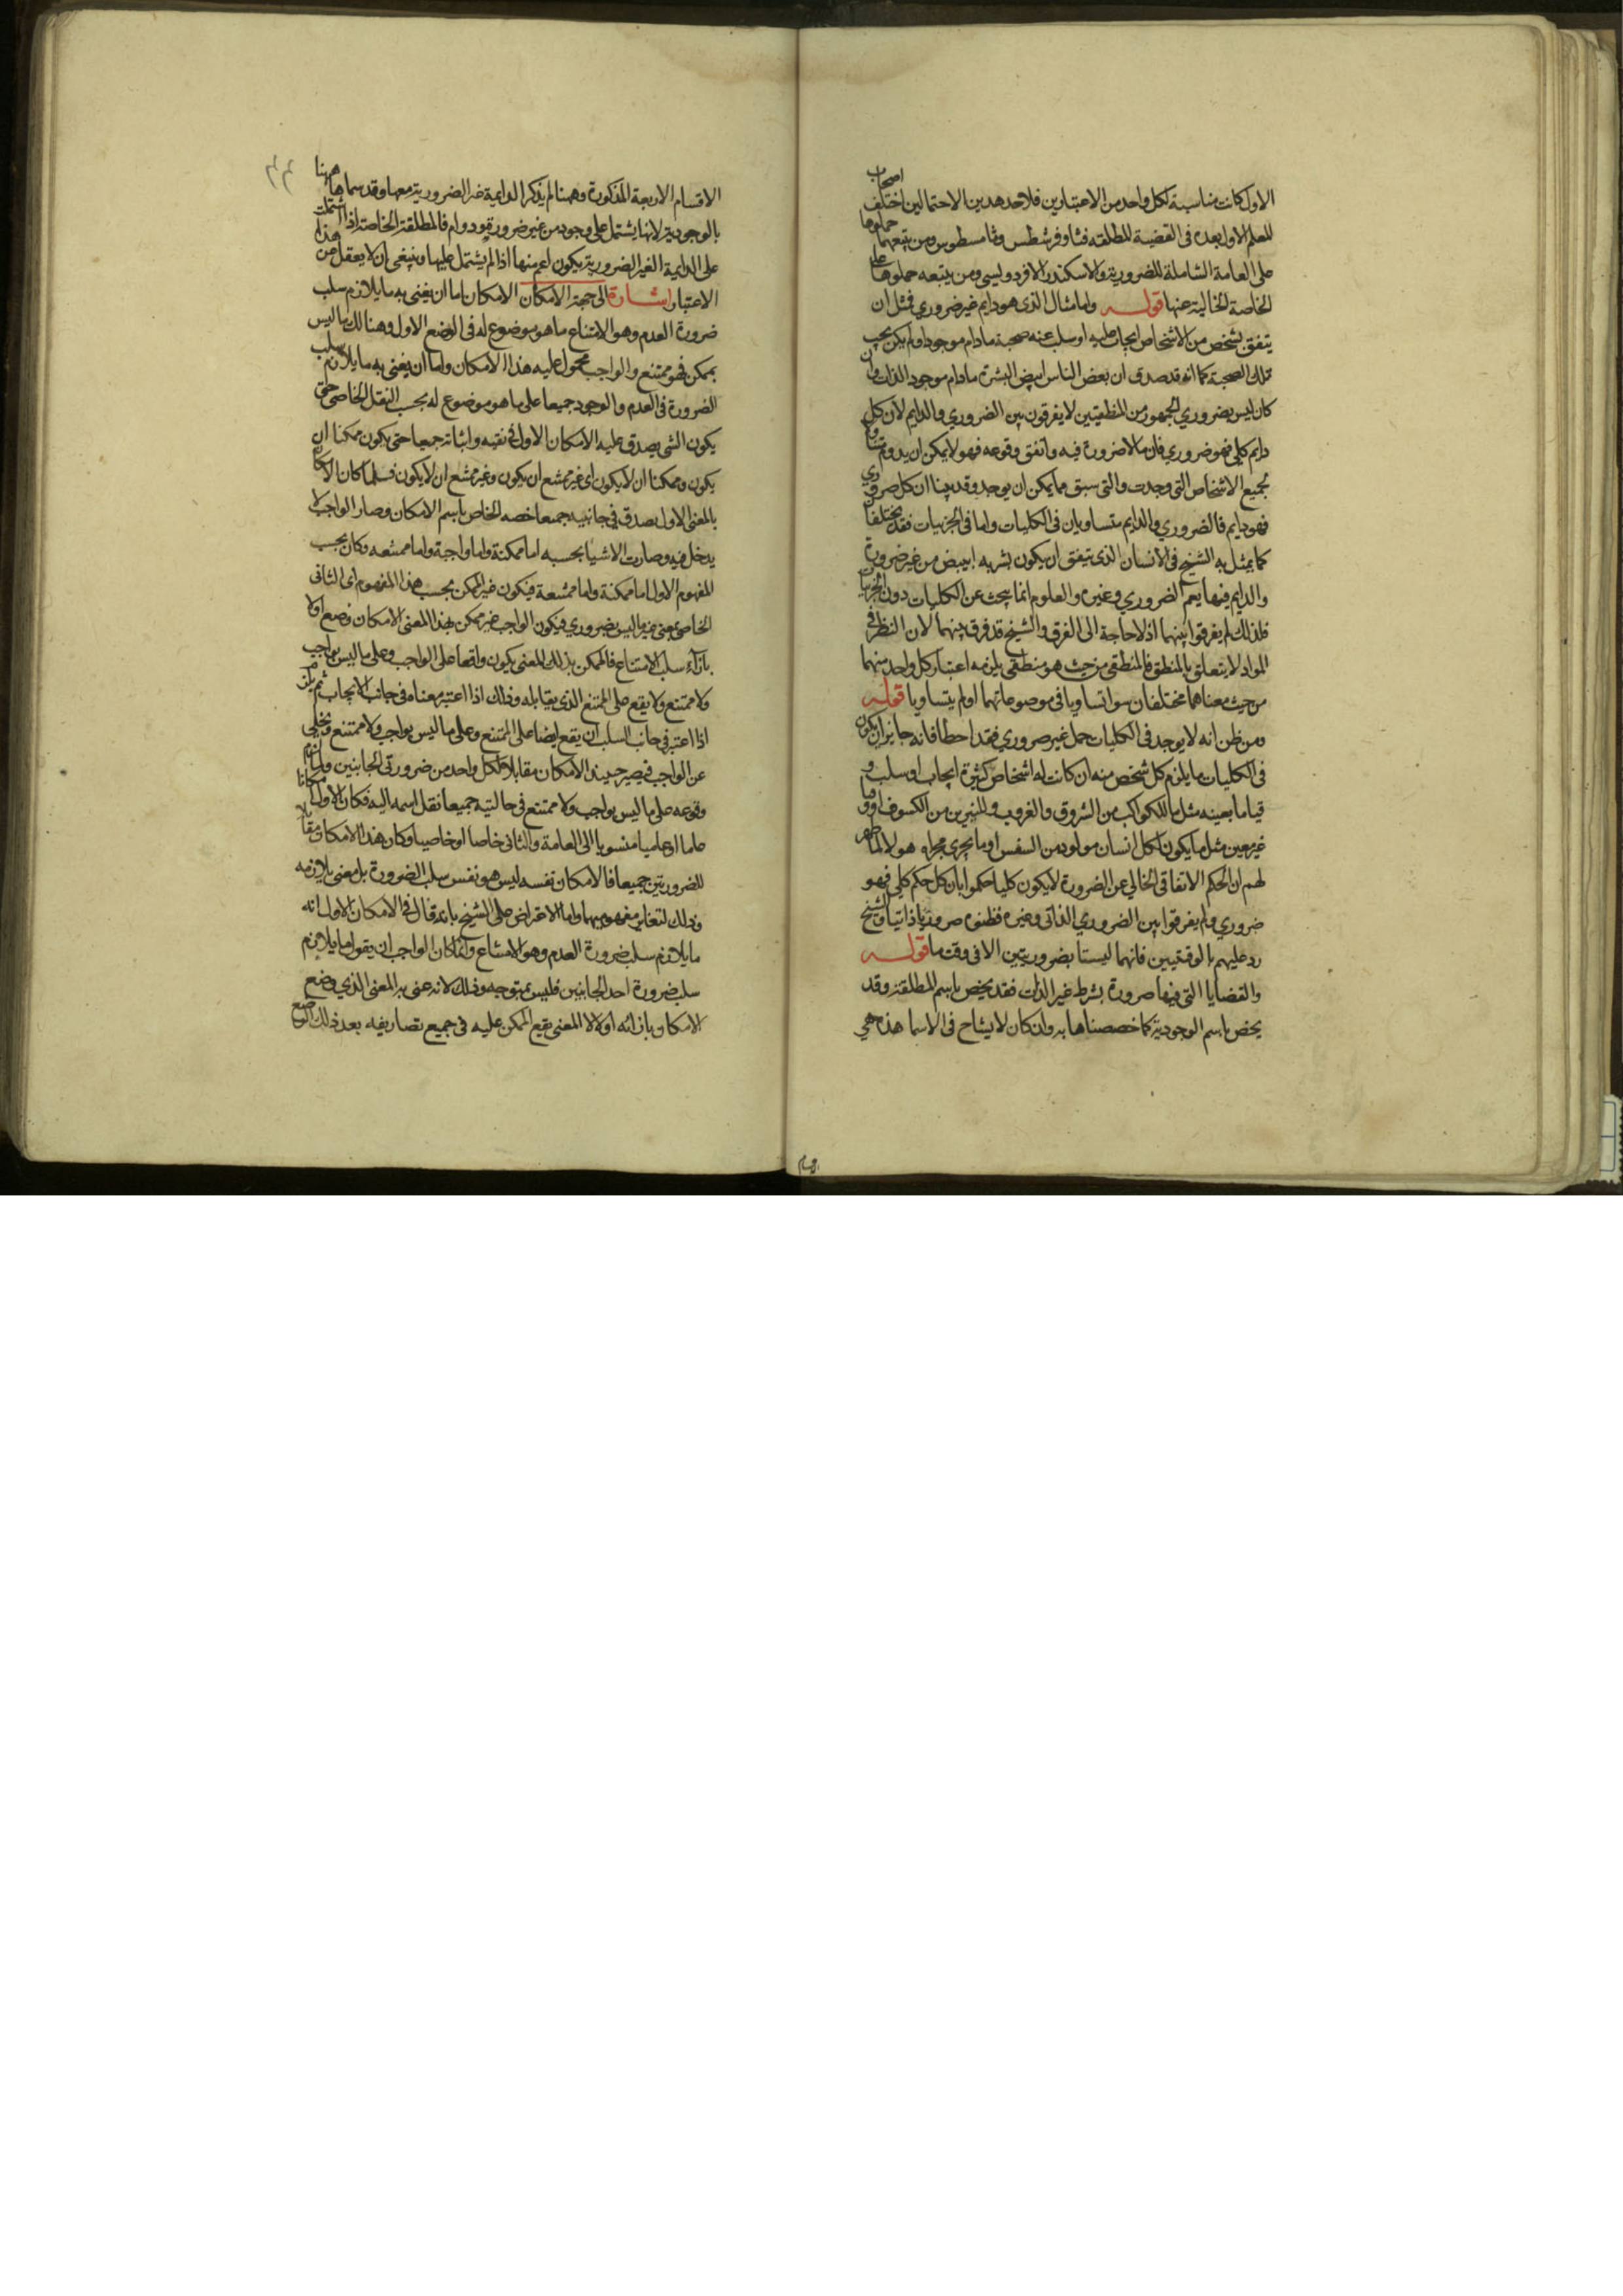 الاول كانت مناسبة لكل واحد من الاعتبارين فلاحد هدين الاحتمالين اختلف اصحاب
للمعلم الاول بعده فى القضية المطلقه فثاوفرسطس وثامسطيوس ومن يتبعهما حملوها
على العامة الشاملة للضرورية والاسكندر الافرودليسى ومن يتبعه حملوها على
الخاصة الخالية عنها قوله واما مثال الذى هو دايم غير ضروري فمثل ان
يتفق لشخص من الاشخاص ايجاب عليه او سلب عنه صحبة مادام موجودا ولم يكن يجب
تلك الصحبة كما انه قد صدق ان بعض الناس ابيض البشرة مادام موجود الذات وان
كان ليس بضروري الجمهور من المنطقيين لا يفرقون بين الضروري والدايم لان كل
دايم كلي فهو ضروري فان مالا ضرورة فيه واتفق وقوعه فهو لا يمكن ان يدوم متناولا
لجميع الاشخاص التى وجدت والتى سبق مما يمكن ان يوجد وقد بينا ان كل ضروري
فهو دايم فالضروري والدايم متساويان فى الكليات واما فى الجزئيات فقد يختلفان
كما يمثل به الشيخ فى الانسان الذى يتفق ان يكون بشربه ابيض من غير ضرورة
والدايم فيها يعم الضروري وغيره والعلوم انما يبحث عن الكليات دون الجزئيات
فلذلك لم يفرقوا بينهما اذ لا حاجة الى الفرق والشيخ قد فرق بينهما لان النظر فى
المواد لا يتعلق بالمنطق فالمنطقى من حيث هو منطقى يلزمه اعتبار كل واحد منهما
من حيث معناهما مختلفان سوا تساويا فى موضوعاتهما او لم يتساويا قوله
ومن ظن انه لا يوجد فى الكليات حمل غير ضروري فقد اخطا فانه جايز ان يكون
فى الكليات ما يلزم كل شخص منه ان كانت له اشخاص كثيرة ايجاب او سلب و
قياما بعينه مثل ما للكواكب من الشروق والغروب و للنيرين من الكسوف او وقتا
غير معين مثل ما يكون لكل انسان مولود من النفس او ما يجري مجراه هولا لما ظهر
لهم ان الحكم الاتفاقى الخالي عن الضرورة لا يكون كليا حكموا بان كل حكم كلي فهو
ضروري ولم يفرقوا بين الضروري الذاتى وغيره فظنوه ضروريا ذاتيا والشيخ
رد عليهم بالوقتيين فانهما ليستا بضروريتين الا فى وقت ما قوله
والقضايا التى فيها ضرورة بشرط غير الذات فقد يخص باسم المطلقة وقد
يخص باسم الوجودية كما خصصناها به وان كان لا يشاح فى الاسما هذه هي
الاقسام الاربعة المذكورة وههنا لم يذكر الدايمة غير الضرورية معها وقد سماها ههنا
بالوجودية لانها يشتمل على وجود من غير ضرورة ودوام فالمطلقة الخاصة اذا اشتملت
على الدايمة الغير الضرورية يكون اعم منها اذا لم يشتمل عليها وينبغى ان لا يعقل عن هذا
الاعتبار اشارة الى جهة الامكان الامكان اما ان يعنى به ما يلازم سلب
ضرورة العدم وهو الامتناع ما هو موضوع له فى الوضع الاول وهنالك ما ليس
بممكن فهو ممتنع والواجب محمول عليه هذا الامكان واما ان يعنى به ما يلازم سلب
الضرورة فى العدم والوجود جميعا على ما هو موضوع له بحسب النقل الخاصى حتى
يكون الشى يصدق عليه الامكان الاول فى نفيه واثباته جميعا حتى يكون ممكنا ان
يكون وممكنا ان لا يكون اى غير ممتنع ان يكون وغير ممتنع ان لا يكون فلما كان الامكان
بالمعنى الاول يصدق فى جانبيه جميعا خصه الخاص باسم الامكان وصار الواجب لا
يدخل فيه وصارت الاشيا بحسبه اما ممكنة واما واجبة واما ممتنعه وكان بحسب
المفهوم الاول اما ممكنة واما ممتنعة فيكون غير الممكن بحسب هذا المفهوم اى الثانى
الخاصى بمعنى غير ما ليس بضروري فيكون الواجب غير ممكن بهذا المعنى الامكان وضع اولا
بازآء سلب الامتناع فالممكن بذلك المعنى يكون واقعا على الواجب وعلى ما ليس بواجب
ولا ممتنع ولا يقع على الممتنع الذى يقابله وذلك اذا اعتبر معناه فى جانب الايجاب ثم يلزم
اذا اعتبر فى جانب السلب ان يقع ايضا على الممتنع وعلى ما ليس بواجب ولا ممتنع ويخلى
عن الواجب فيصير حينيذ الامكان مقابلا لكل واحد من ضرورتى الجانبين ولما لزم
وقوعه على ما ليس بواجب ولا ممتنع فى حالتيه جميعا نقل اسمه اليه فكان الاول امكانا
عاما او عاميا منسوبا الى العامة والثانى خاصا او خاصيا وكان هذا الامكان مقابلا
للضرورتين جميعا فالامكان نفسه ليس هو نفس سلب الضرورة بل معنى يلازمه
وذلك لتغاير مفهوميهما واما الاعتراض على الشيخ بانه قال فى الامكان الاول انه
ما يلازم سلب ضرورة العدم وهو الامتناع وانما كان الواجب ان يقول ما يلازم
سلب ضرورة احد الجانبين فليس بمتوجه وذلك لانه عنى به المعنى الذي وضع
الامكان بازائه اولا لا المعنى يقع الممكن عليه فى جميع تصاريفه بعد ذلك الوضع